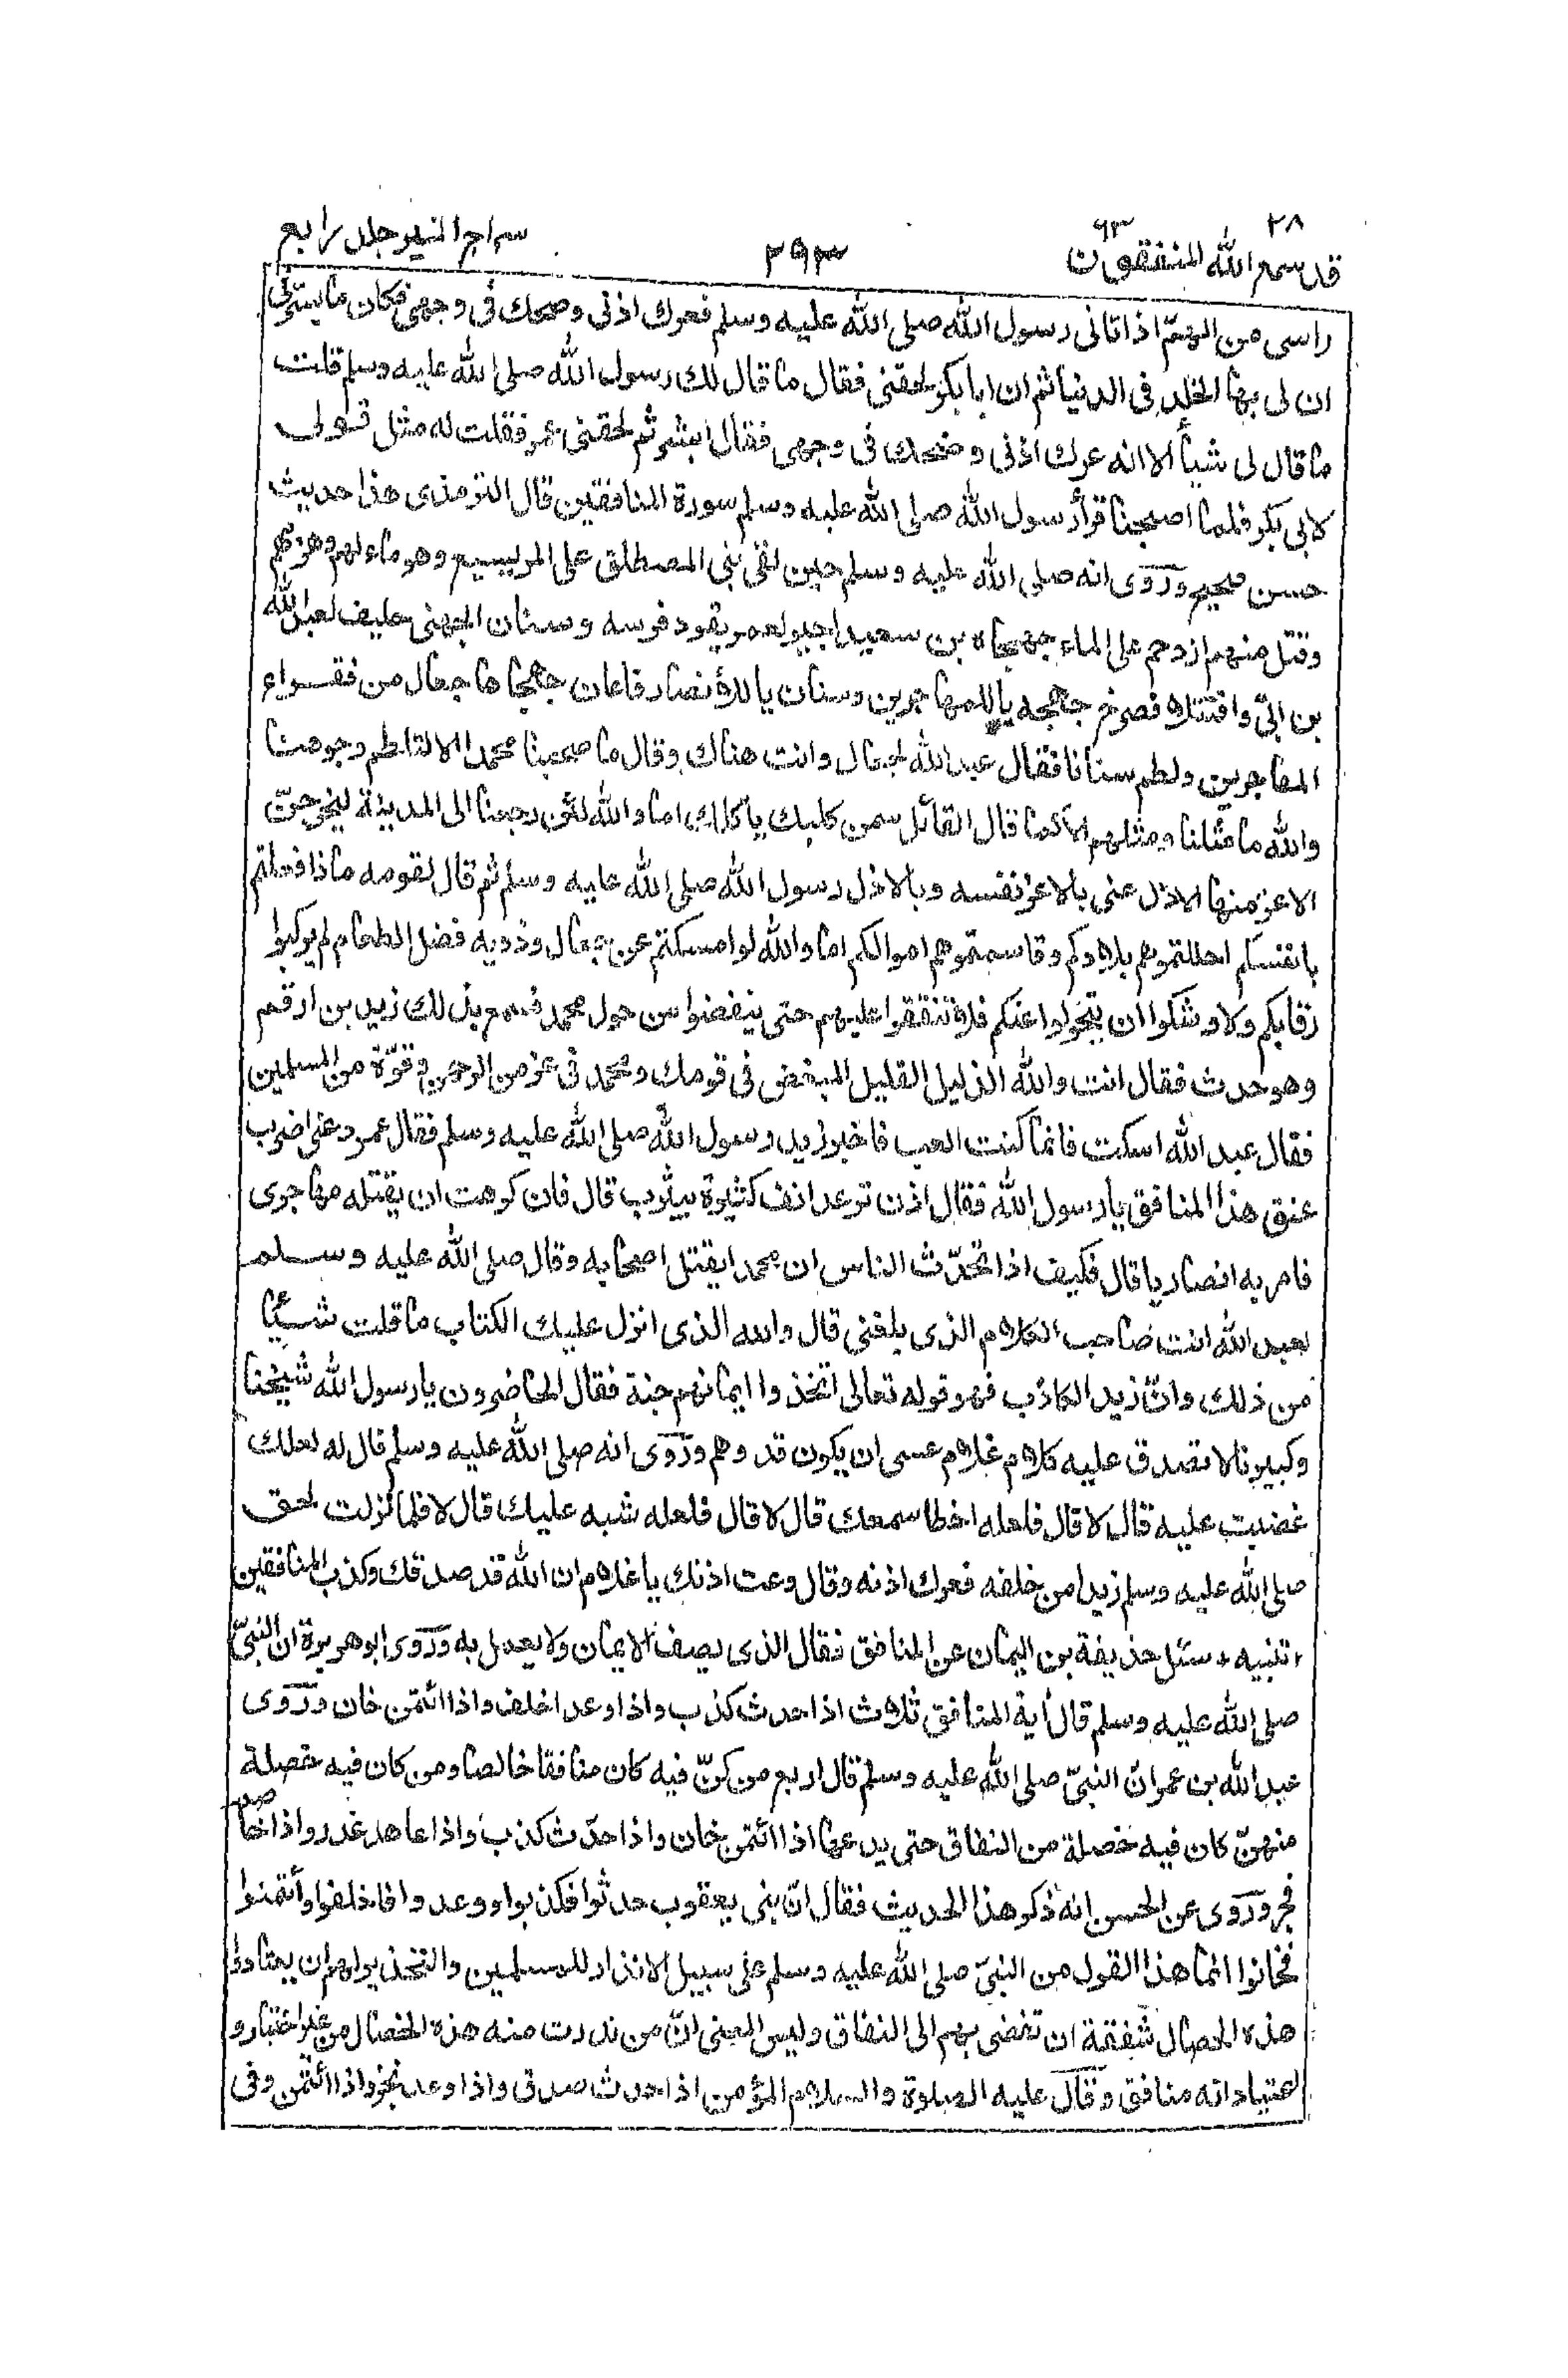 ٢٨
قد سمع الله المنفقون ٦٣
٢٩٣
سراج المنير جلد رابع
راسى من الهمّ اذ اتانى رسول الله صلى الله عليه وسلم فعرك اذنى وضحك فى وجهى فكان ما يسرّنى
ان لى بها الخلد فى الدنيا ثم ان ابا بكر لحقنى فقال ما قال لك رسول الله صلى الله عليه وسلم قلت
ما قال لى شيأ الا انه عرك اذنى وضحك فى وجهى فقال ابشر ثم لحقنى عمر فقلت له مثل قولى
لابى بكر فلما اصبحنا قرأ رسول الله صلى الله عليه وسلم سورة المنافقين قال الترمذى هذا حديث
حسن صحيح وروى انه صلى الله عليه وسلم حين لقى بنى المصطلق على المريسيع وهو ماء لهم وهزمهم
وقتل منهم ازدحم على الماء جهجاه بن سعيد اجير لعمر يقود فرسه وسنان الجهنى حليف لعبد الله
بن ابىّ واقتتلا فصرخ جهجه ياللمهاجرين وسنان ياللانصار فاعان جهجاها جعال من فقراء
المهاجرين ولطم سنانا فقال عبد الله لجعال وانت هناك وقال ما صحبنا محمدا الا لتلطم وجوهنا
والله ما مثلنا ومثلهم الا كما قال القائل سمن كلبك ياكلك اما والله لئن رجعنا الى المدينة ليخرجنّ
الاعز منها الاذل عنى بالاعز نفسه وبالاذل رسول الله صلى الله عليه وسلم ثم قال لقومه ماذا فعلتم
بانفسكم احللتموهم بلادكم وقاسمتموهم اموالكم اما والله لو امسكتم عن جعال وذويه فضل الطعام لم يركبوا
رقابكم ولاوشكوا ان يتحولوا عنكم فلا تنفقوا عليهم حتى ينفضوا من حول محمد فسمع بذلك زيد بن ارقم
وهو حدث فقال انت والله الذليل القليل المبغض فى قومك ومحمد فى عز من الرحمن وقوّة من المسلمين
فقال عبد الله اسكت فانما كنت العب فاخبر زيد رسول الله صلى الله عليه وسلم فقال عمر دعنى اضرب
عنق هذا المنافق يا رسول الله فقال اذن ترعد انف كثيرة بيثرب قال فان كرهت ان يقتله مهاجرى
فامر به انصاريا قال فكيف اذا تحدّث الناس ان محمدا يقتل اصحابه وقال صلى الله عليه وسلم
لعبد الله انت صاحب الكلام الذى بلغنى قال والله الذى انزل عليك الكتاب ما قلت شيئا
من ذلك وانّ زيد الكاذب فهو قوله تعالى اتخذوا ايمانهم جنة فقال الحاضرون يا رسول الله شيخنا
وكبيرنا لا تصدق عليه كلام غلام عسى ان يكون قد وهم وروى انه صلى الله عليه وسلم قال له لعلك
غضبت عليه قال لا قال فلعله اخطا سمعك قال لا قال فلعله شبه عليك قال لا فلما نزلت لحق
صلى الله عليه وسلم زيدا من خلفه فعرك اذنه وقال وعت اذنك يا غلام ان الله قد صدقك وكذب المنافقين
٭ تنبيه ٭ سئل حذيفة بن اليمان عن المنافق فقال الذى يصف الايمان ولا يعمل به وروى ابو هريرة ان النبىّ
صلى الله عليه وسلم قال أية المنافق ثلاث اذا حدث كذب واذا وعد اخلف واذا ائتمن خان وروى
عبد الله بن عمر انّ النبىّ صلى الله عليه وسلم قال اربع من كنّ فيه كان منافقا خالصا ومن كان فيه خصلة
منهنّ كان فيه خصلة من النفاق حتى يدعها اذا ائتمن خان واذا حدّث كذب واذا عاهد غدر واذا خاصم
فجر وروى عن الحسن انه ذكر هذا الحديث فقال انّ بنى يعقوب حدثوا فكذبوا ووعدوا فاخلفوا وأتمنوا
فخانوا انما هذا القول من النبىّ صلى الله عليه وسلم على سبيل الانذار للمسلمين والتحذير لهم ان يعتادوا
هذه الخصال شفقة ان تفضى بهم الى النفاق وليس المعنى انّ من ندرت منه هذه الخصال من غير اختيار و
اعتياد انه منافق وقال عليه الصلوة والسلام المؤمن اذا حدث صدق واذا وعد نجز واذا ائتمن وفى